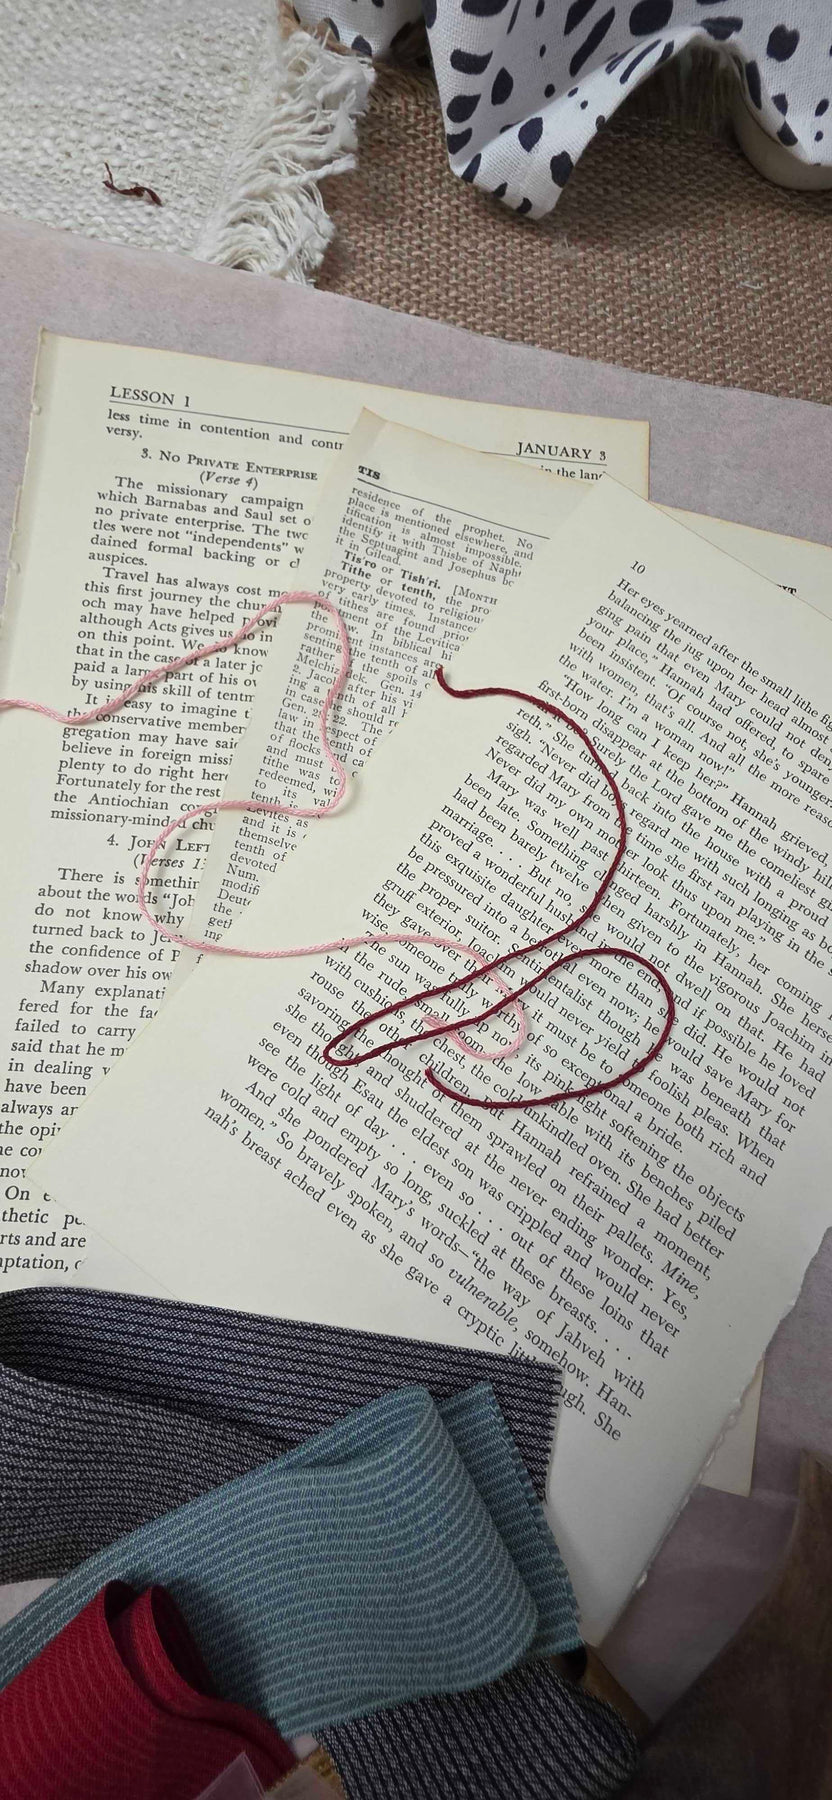 LESSON 1
JANUARY 3
less time in contention and contr
in the land
versy.
3. NO PRIVATE ENTERPRISE
(Verse 4)
The missionary campaign
which Barnabas and Saul set o
no private enterprise. The two
tles were not "independents" w
dained formal backing or
auspices.
Travel has always cost
this first journey the church
och may have helped provi
although Acts gives us no in
on this point. We know
that in the case of a later jo
paid a large part of his ow
by using his skill of tentm
It is easy to imagine t
the conservative member
gregation may have said
believe in foreign missi
plenty to do right here
Fortunately for the rest
the Antiochian
missionary-minded chu
4. JOHN LEFT
(Verses
There is somethin
about the words "Joh
do not know why
turned back to
the confidence of P
shadow over his ow
Many explanati
fered for the
failed to carry
said that he
in dealing
have been
always
the
On
thetic
rts and are
mptation,
TIS
residence of the prophet. No
place is mentioned elsewhere, and
tification is almost impossible.
identify it with Thisbe of Napht
the Septuagint and Josephus
it in Gilead.
Tis'ro or Tish'ri. [MONTH
Tithe or tenth, the pro
property devoted to religiou
very early times. Instances
of tithes are found prior
of the Levitica
the law. In biblical hi
instances are
senting the tenth of all
rather the spoils
Gen. 14
2. Jacob after his vi
ing a tenth of all
in case he should r
Gen. 22. The
law in respect of
that the tenth of
of flocks and
and must
tithe was
redeemed,
to its val
tenth is
Levites as
and it is
themselve
tenth of
devoted
Num.
modifi
Deut
the
10
Her eyes yearned after the small lithe
balancing the jug upon her head almost
ging pain that even Mary could not
your place," Hannah had offered, to spare
been insistent. "Of course not, she's younger
with women, that's all. And all the more
the water. I'm a woman now!"
"How long can I keep her?" Hannah grieved,
first-born disappear at the bottom of the windy
Surely the Lord gave me the comeliest
reth." She turned back into the house with a proud
sigh. "Never did regard me with such longing as
regarded Mary from the time she first ran playing in the
Never did my own mother look thus upon me."
Mary was well past thirteen. Fortunately, her coming
been late. Something changed harshly in Hannah. She herse
had been barely twelve when given to the vigorous Joachim in
marriage. . . . But no, she would not dwell on that. He had
proved a wonderful husband in the end, and if possible he loved
this exquisite daughter even more than she did. He would not
be pressured into a betrothal even now; he would save Mary for
the proper suitor. Sentimentalist though he was beneath that
gruff exterior, Joachim would never yield to foolish pleas. When
they gave over their it must be to someone both rich and
wise, someone truly worthy of so exceptional a bride.
The sun was fully up now, its pink light softening the objects
in the rude room, the low table with its benches piled
with cushions, the chest, the cold unkindled oven. She had better
rouse the other children, but Hannah refrained a moment,
savoring the thought of them sprawled on their pallets. Mine,
she thought, and shuddered at the never ending wonder. Yes,
even though Esau the eldest son was crippled and would never
see the light of day . . . even so . . . out of these loins that
were cold and empty so long, suckled at these breasts. . . .
And she pondered Mary's words—"the way of Jahveh with
women." So bravely spoken, and so vulnerable, somehow. Han-
nah's breast ached even as she gave a cryptic She